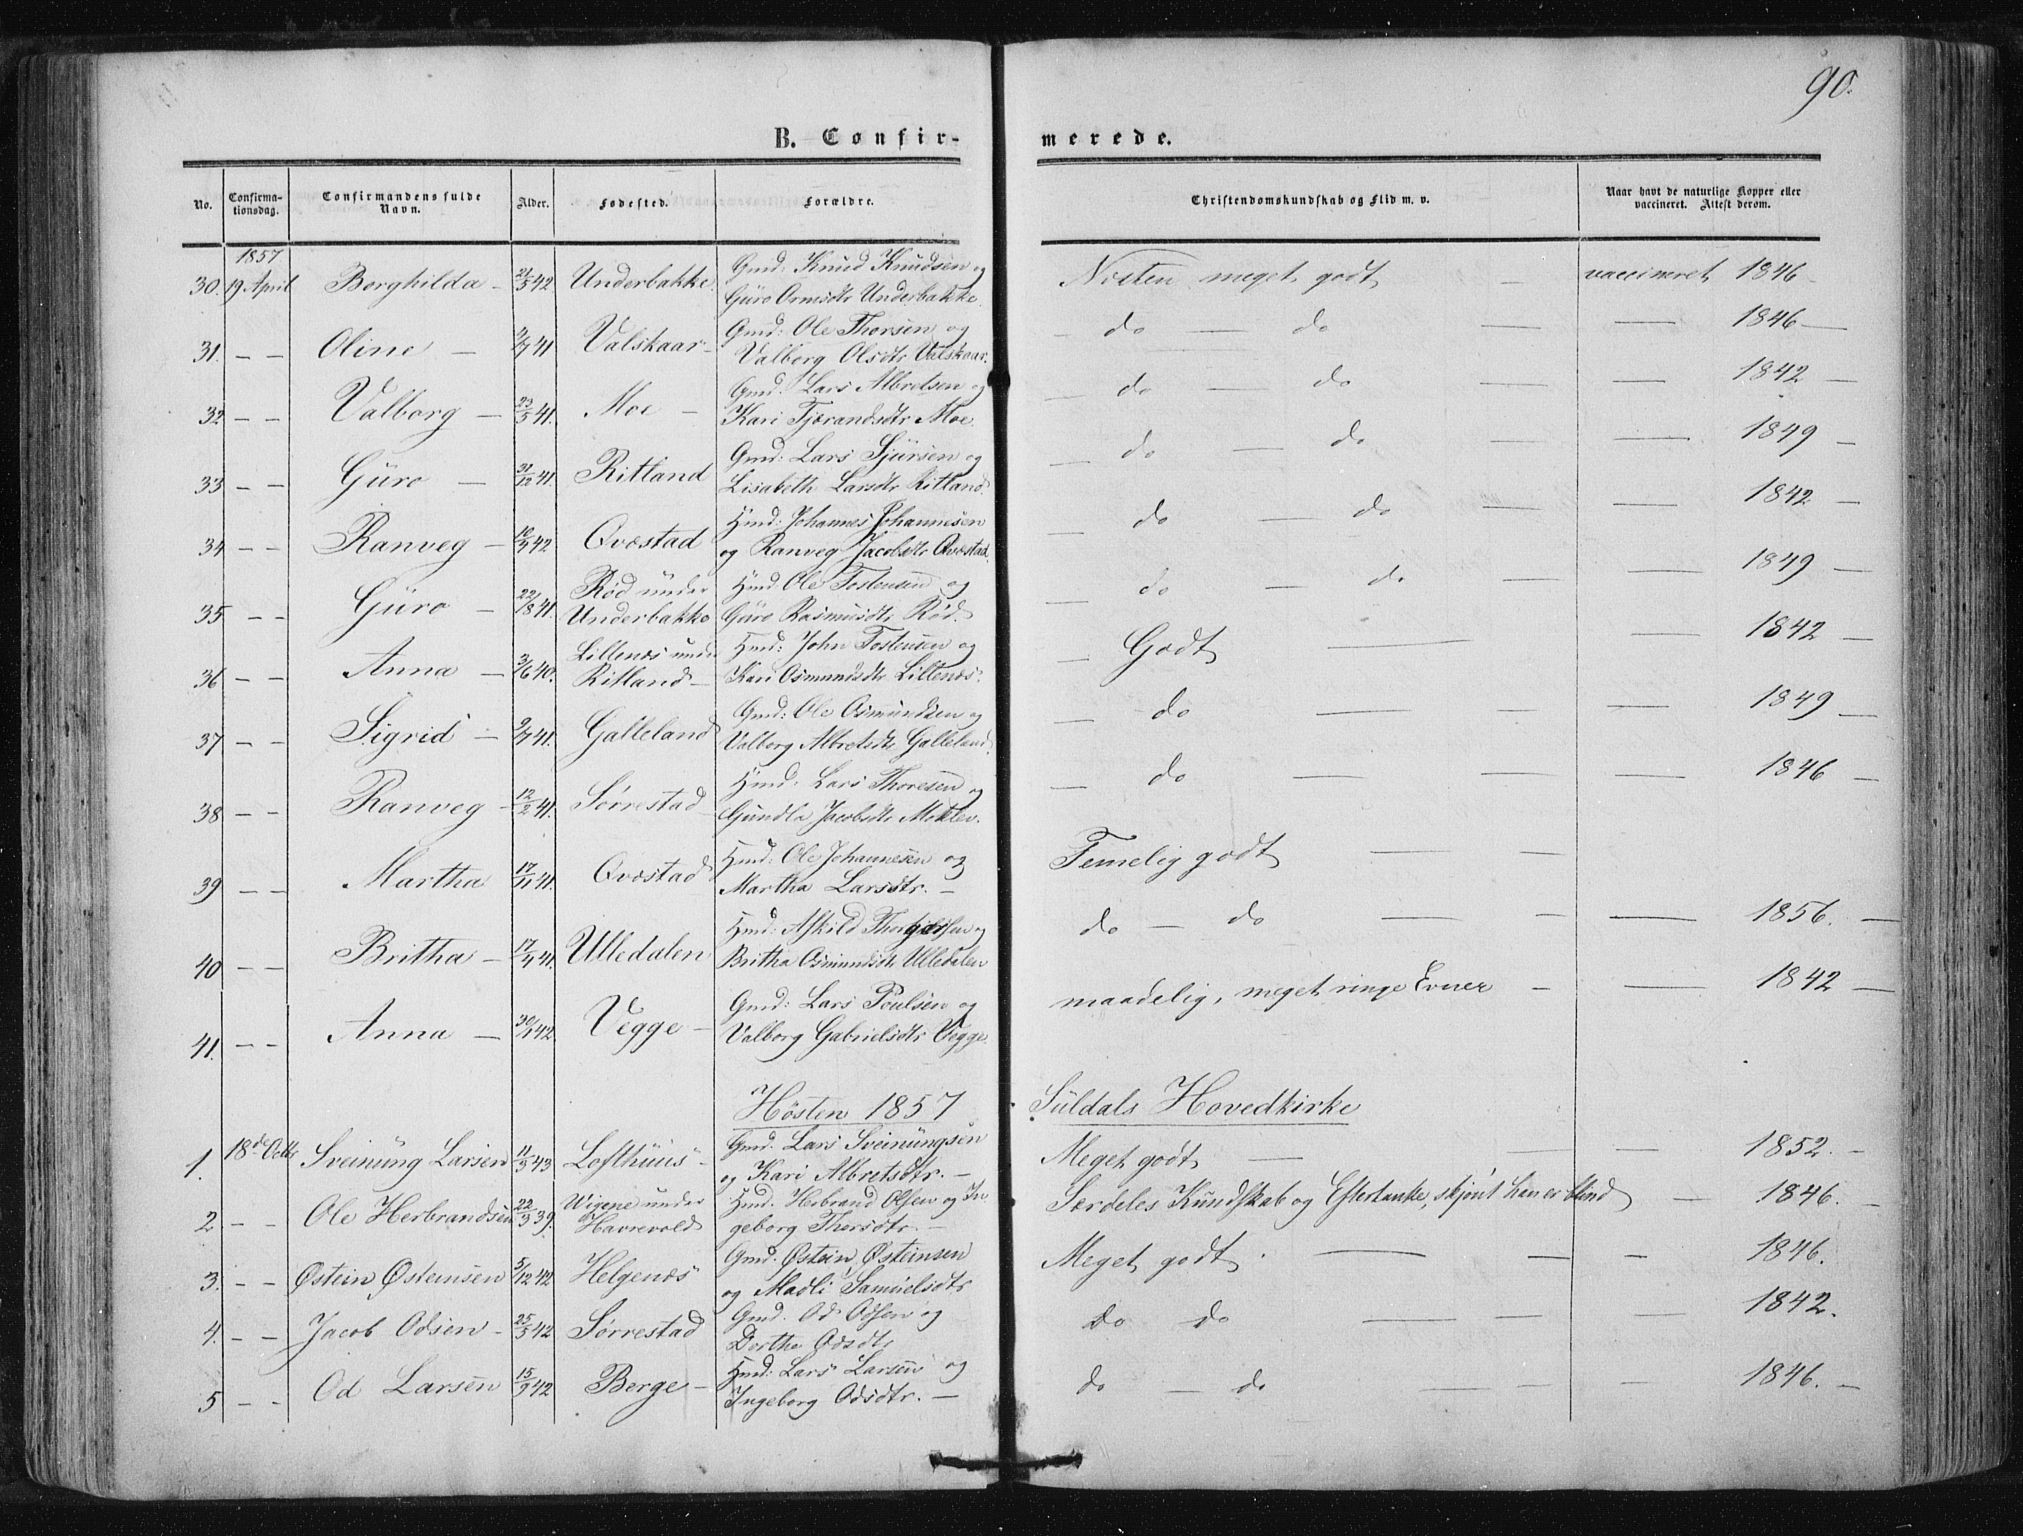 90.
B. Confir-
merede.
No.
Confirma-
tionsdag.
Confirmandens fulde
Navn.
Alder.
Fødested.
Forældre.
Christendomskundskab og Flid m. v.
Naar havt de naturlige Kopper eller
vaccineret. Attest derom.
1857
30. 19 April Borghilda - 21/5 42 Underbakke. Gmd: Knud Knudsen og
Güro Ormsdtr Underbakke.
Næsten meget godt - vaccineret 1846
31. - - Oline - 41 Valskaar - Gmd: Ole Thorsen og
Valborg Olsdtr Valskaar.
do - do - - 1846 -
32 - - Valborg - 23/5 41. Moe - Gmd. Lars Albretsen og
Kari Tjerandsdtr Moe.
- do - do - - 1842 -
33 - - Güro - 30/12 41. Ritland Gmd: Lars Sjursen og
Lisabeth Larsdtr Ritland.
- do - do - - 1849 -
34 - - Ranveg - 42 Qvæstad Hmd: Johannes Johannesen
og Ranveg Jacobsdtr Qvæstad.
- do - do - - 1842 -
35 - - Güro - 22/8 41. Rød under
Underbakke Hmd. Ole Tostensen og
Güro Rasmusdtr Rød.
- do - do - - 1849 -
36 - - Anna - 3/6 40. Lillenæs under
Ritland - Hmd: John Tostensen og
Kari Osmundsdtr Lillenæs.
- Godt - - 1842 -
37 - - Sigrid - 41. Galleland Gmd: Ole Osmundsen og
Valborg Albretsdtr Galleland.
- do - - - 1849 -
38 - - Ranveg - 12/2 41. Sørrestad Hmd. Lars Thoresen og
Gundla Jacobsdtr Moklev.
- do - - - 1846 -
39 - - Martha 17/11 41. Qvæstad Hmd: Ole Johannesen og
Martha Larsdtr. -
Temelig godt - -
40 - - Britha - 41. Ulledalen Hmd: Askild og
Britha Osmundsdtr Ulledalen
do - do - - - 1856. -
41. - - Anna - 42. Vegge - Gmd: Lars Poulsen og
Valborg Gabrielsdtr Vegge.
maadelig, meget ringe Evner - - 1842 -
Høsten 1857 Süldals Hovedkirke
1. 18de Octbr Sveinung Larsen 11/3 43 Lofthüüs - Gmd. Lars Sveinungsen
og Kari Albretsdtr. -
Meget godt - - - 1852. -
2 - - Ole Herbrandsen 22/3 39. Wigene under
Havrevold Hmd. Herbrand Olsen og In
geborg Thorsdtr. -
Særdeles Kundskab og Eftertanke, skjønt han er blind - 1846. -
3. - - Østein Østeinsen 5/12 42 Helgenæs Gmd. Østein Østeinsen
og Madli Samuelsdtr
Meget godt. - - - 1846.
4. - - Jacob Odsen - 25/5 42 Sørrestad Gmd. Od Odsen og
Dorthe Odsdtr
do do - - - 1842.
5 - - Od Larsen 15/9 42 Berge - Hmd: Lars Larsen og
Ingeborg Odsdtr. -
do - do - - - 1846. -